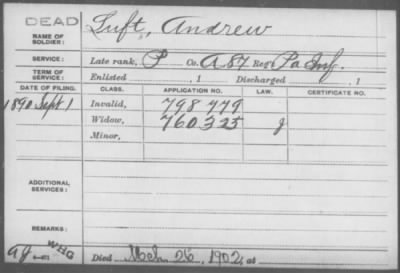 DEAD
NAME OF SOLDIER: Luft, Andrew
SERVICE: Late rank, P Co. A 87 Reg't Pa Inf.
TERM OF SERVICE: Enlisted , 1 Discharged , 1
DATE OF FILING. CLASS. APPLICATION NO. LAW. CERTIFICATE NO.
1890 Sept 1 Invalid, 798 779
Widow, 760 325 g
Minor,
ADDITIONAL SERVICES:
REMARKS:
WHG
Died Mch 26, 1902, at